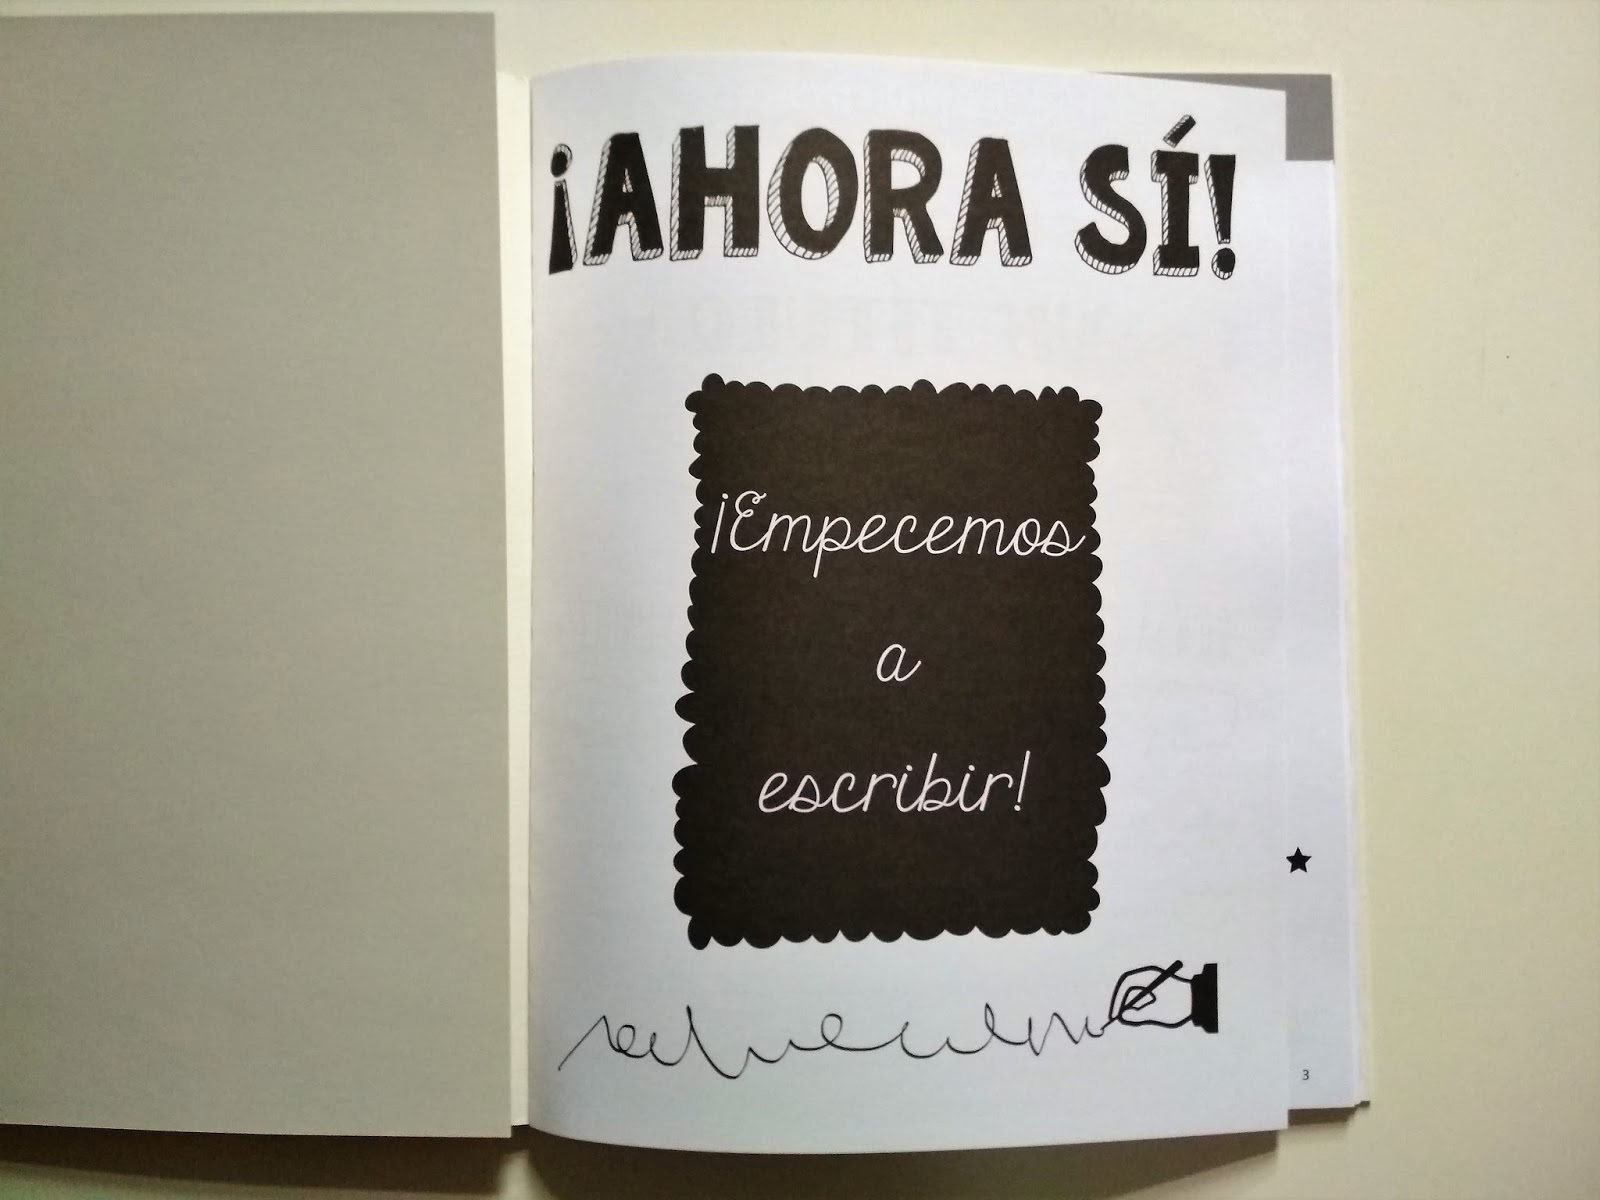 ¡AHORA SÍ!
¡Empecemos
a
escribir!
3